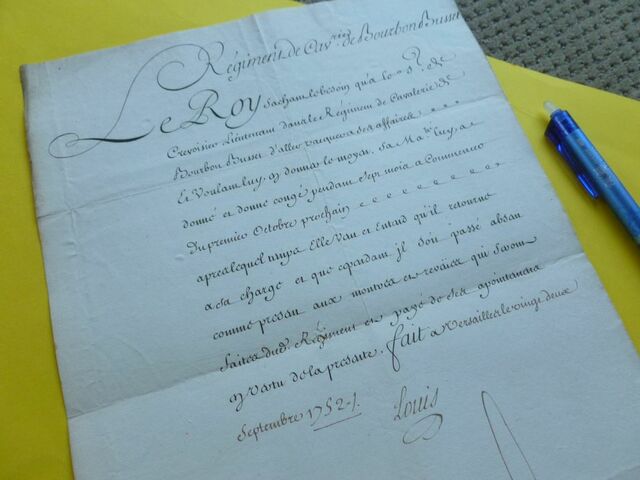 Régiment de Cav.rie de Bourbon Busset
Le Roy sachant le besoin qu'a le S.r de
Crevoisier Lieutenant dans le Régiment de Cavalerie de
Bourbon Busset d'aller vacquer a ses affaires,
Et Voulant luy en donner le moyen, Sa Ma.té luy a
donné et donne congé pendant sept mois a Commencer
Du premier Octobre prochain
apres lequel temps Elle Veut et Entend qu'il retourne
a sa charge et que cependant il soit passé absent
comme present aux montres et reveües qui seront
faites dud. Régiment et payé de ses apointemens
en vertu de la presente. fait a Versailles le vingt deux
Septembre 1752. Louis